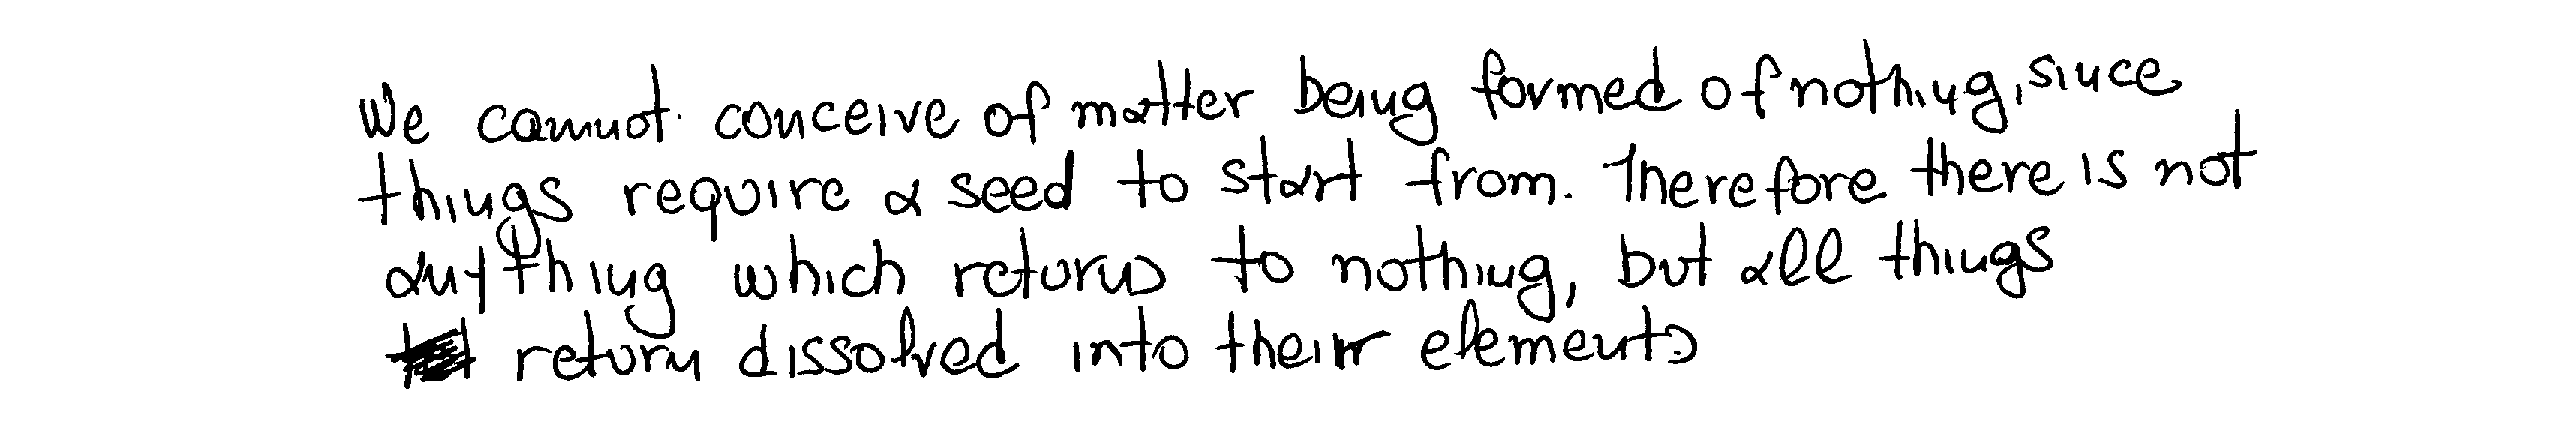 We cannot conceive of matter being formed of nothing, since
things require a seed to start from. Therefore there is not
anything which returns to nothing, but all things
return dissolved into their elements